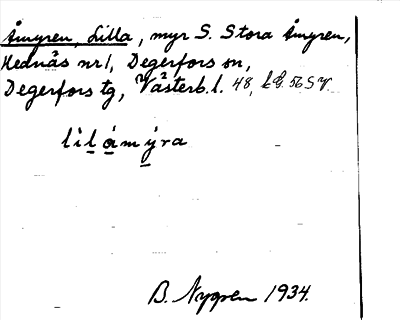 Åmyren, Lilla, myr S. Stora Åmyren,
Hednäs nr 1, Degerfors sn,
Degerfors tg, Västerb.l. 48, 56 S V.
lìlåmýra
B. Nygren 1934.